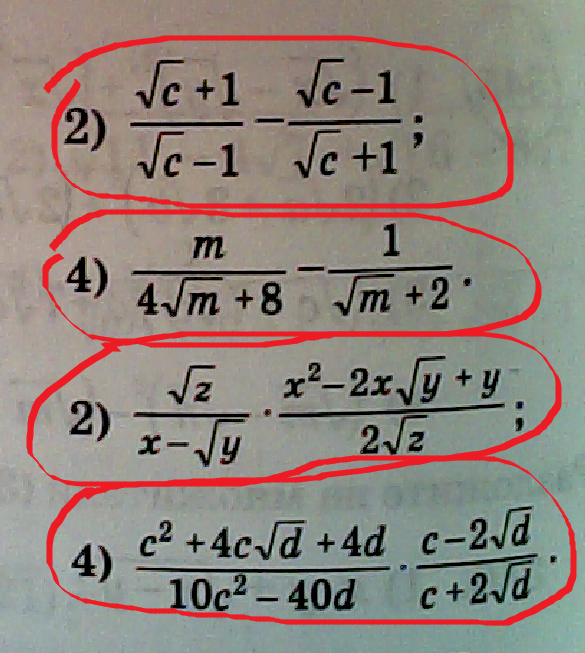 2) \frac{\sqrt{c}+1}{\sqrt{c}-1} - \frac{\sqrt{c}-1}{\sqrt{c}+1};
4) \frac{m}{4\sqrt{m}+8} - \frac{1}{\sqrt{m}+2}.
2) \frac{\sqrt{z}}{x-\sqrt{y}} \cdot \frac{x^2-2x\sqrt{y}+y}{2\sqrt{z}};
4) \frac{c^2+4c\sqrt{d}+4d}{10c^2-40d} \cdot \frac{c-2\sqrt{d}}{c+2\sqrt{d}}.